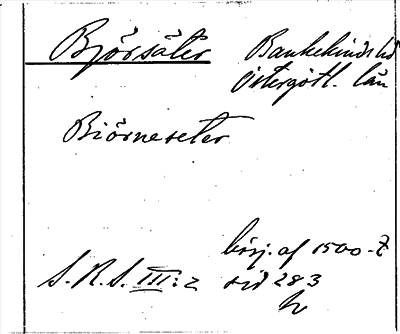 Björsäter Bankekinds hd
Östergötl. län
Biörneseter
börj. af 1500-t
S.R.S. III:2 sid 283